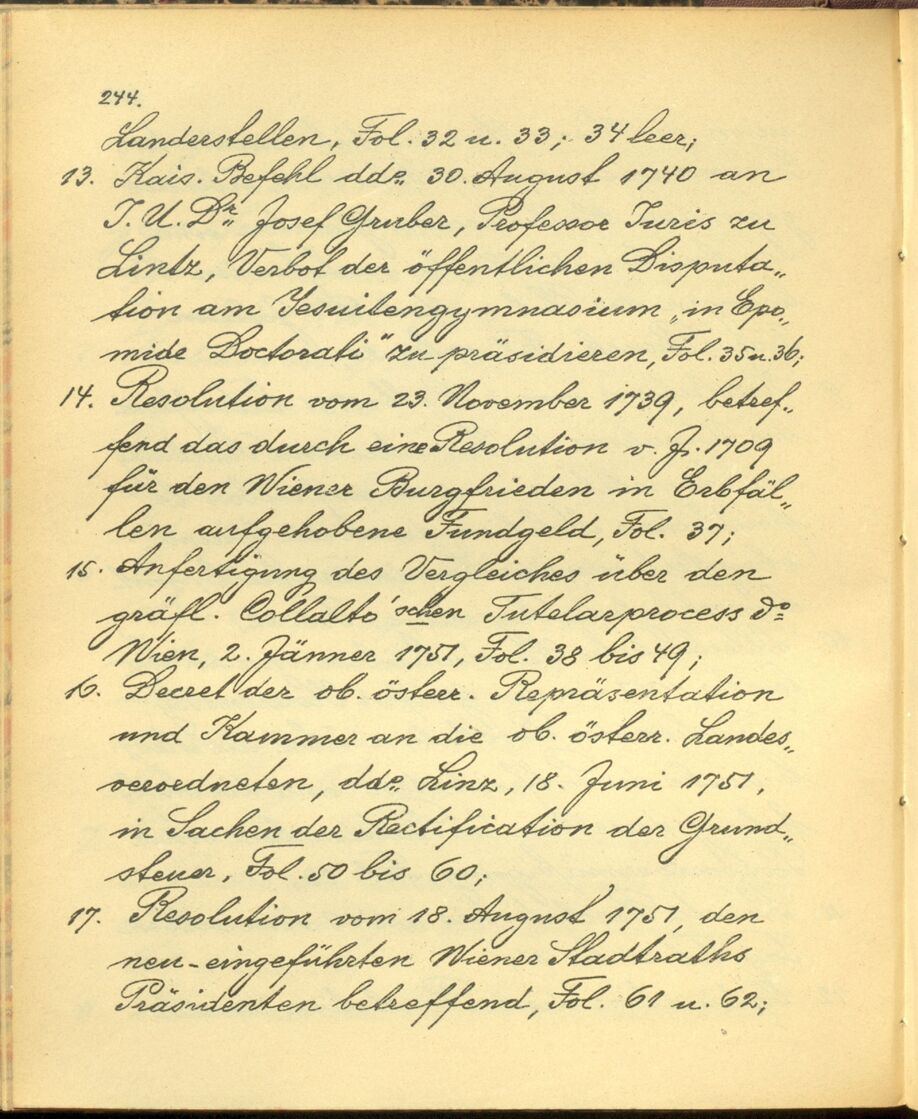 244.
Landerstellen, Fol. 32 u. 33; 34 leer;
13. Kais. Befehl dde. 30. August 1740 an
I. U. Dr. Josef Gruber, Professor Iuris zu
Lintz, Verbot der öffentlichen Disputa„
tion am Jesuitengymnasium „in Epo„
mide Doctorali" zu präsidieren, Fol. 35 u. 36;
14. Resolution vom 23. November 1739, betref„
fend das durch eine Resolution v. J. 1709
für den Wiener Burgfrieden in Erbfäl„
len aufgehobene Fundgeld, Fol. 37;
15. Anfertigung des Vergleiches über den
gräfl. Collalto'schen Tutelarprocess do
Wien, 2. Jänner 1751, Fol. 38 bis 49;
16. Decret der ob. österr. Repräsentation
und Kammer an die ob. österr. Landes„
verordneten, dde. Linz, 18. Juni 1751,
in Sachen der Rectification der Grund„
steuer, Fol. 50 bis 60;
17. Resolution vom 18. August 1751, den
neu-eingeführten Wiener Stadtraths
Präsidenten betreffend, Fol. 61 u. 62;